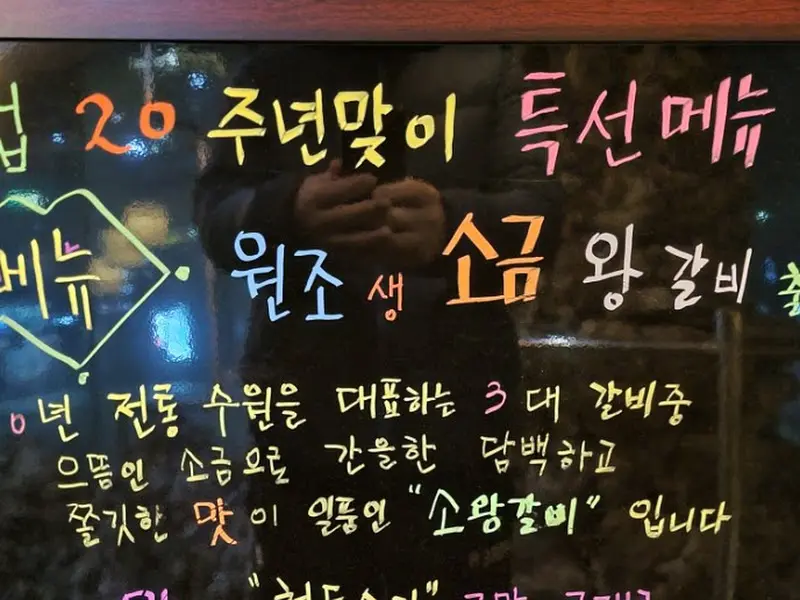 업 20 주년맞이 특선메뉴
메뉴 원조 생 소금 왕 갈비 출
0년 전통 수원을 대표하는 3대 갈비중
으뜸인 소금으로 간을한 담백하고
쫄깃한 맛이 일품인 "소왕갈비" 입니다